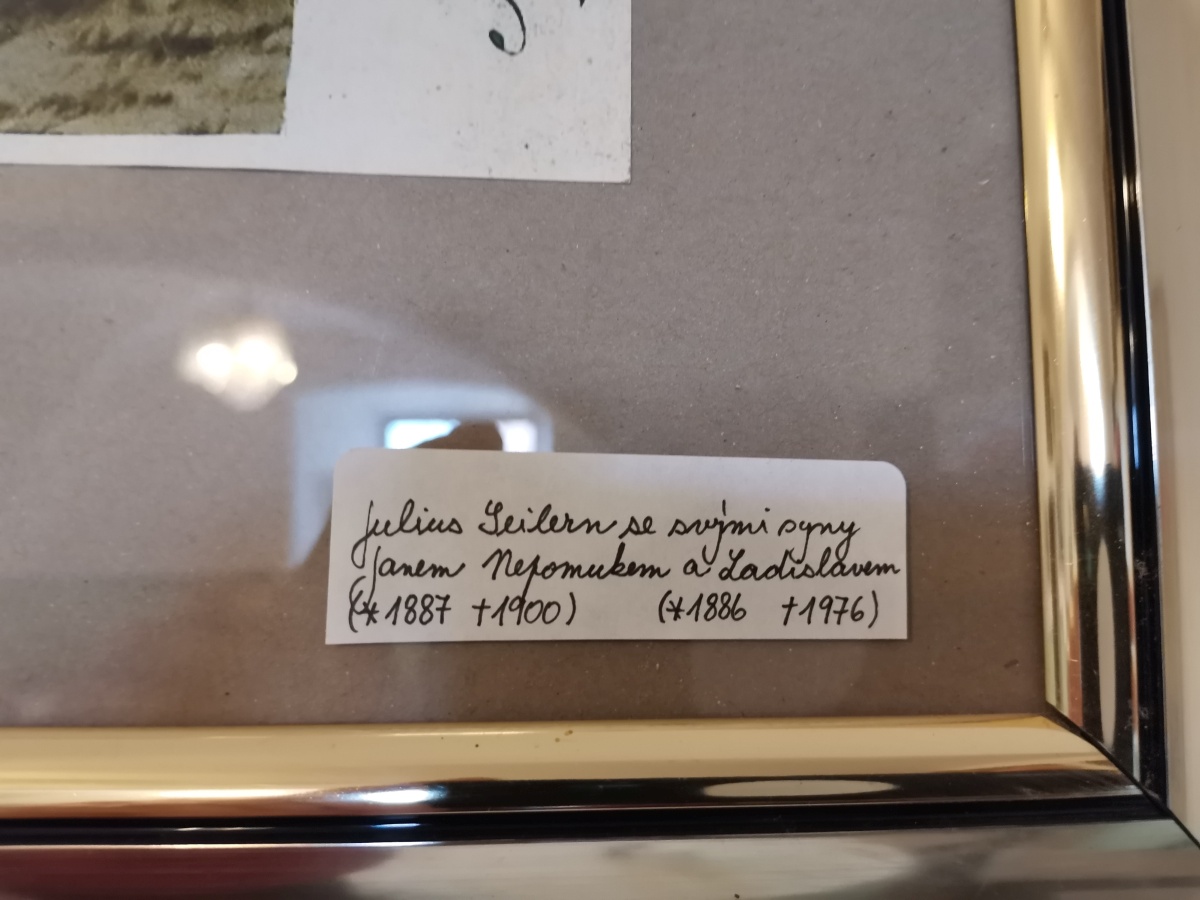 Julius Seilern se svými syny
Janem Nepomukem a Ladislavem
(*1887 †1900) (*1886 †1976)